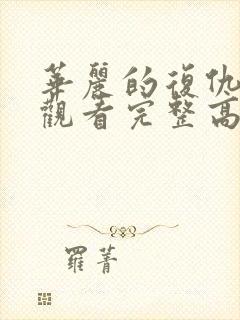 華麗的復仇
觀看完整高
羅菁